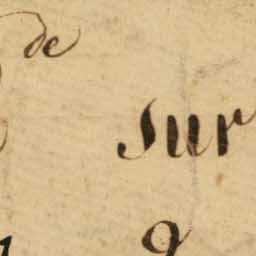 de
sur